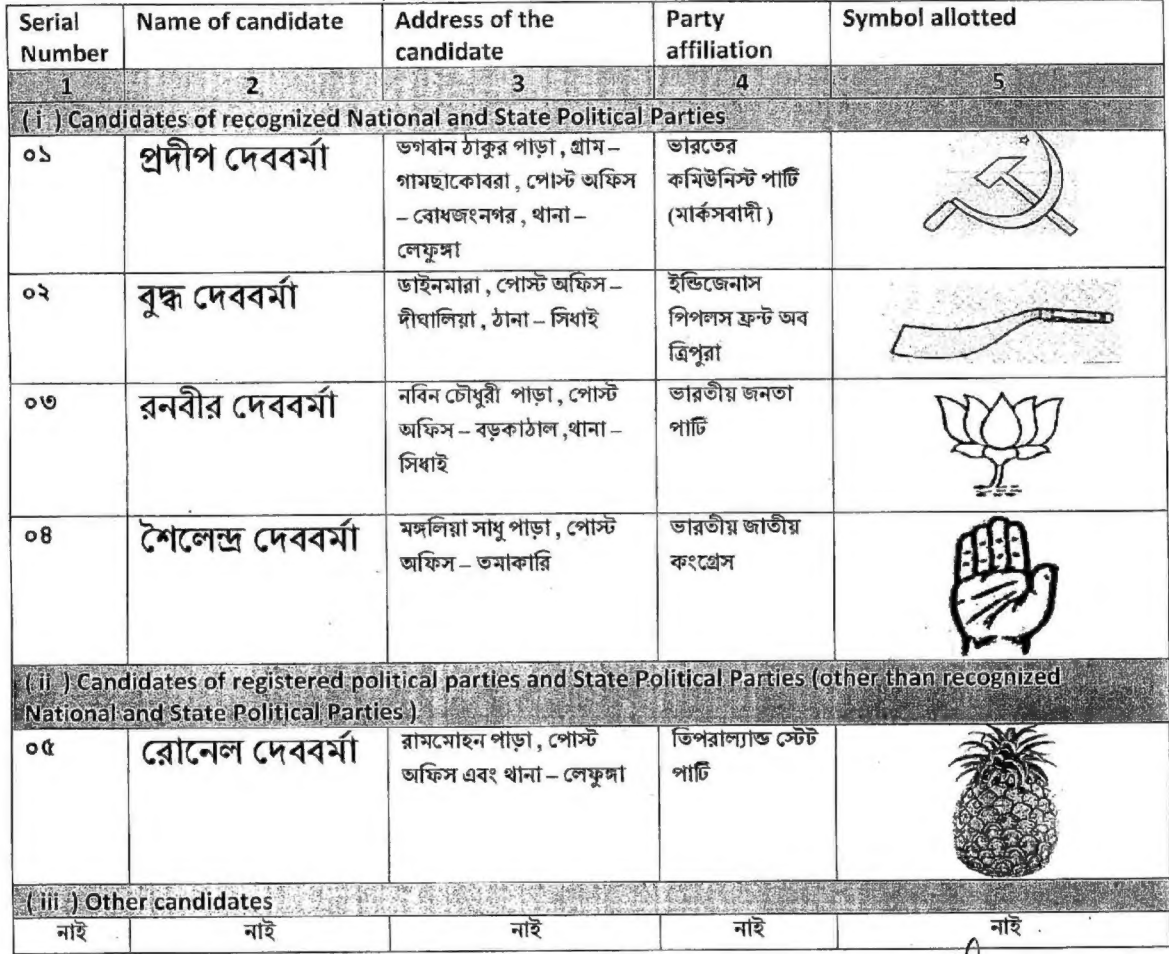 Serial Number Name of candidate Address of the candidate Party affiliation Symbol allotted
1 2 3 4 5
( i ) Candidates of recognized National and State Political Parties
০১ প্রদীপ দেববর্মা ভগবান ঠাকুর পাড়া , গ্রাম –
গামছাকোবরা , পোস্ট অফিস
– বোধজংনগর , থানা –
লেফুঙ্গা
ভারতের
কমিউনিস্ট পার্টি
(মার্কসবাদী )
০২ বুদ্ধ দেববর্মা ডাইনমারা , পোস্ট অফিস –
দীঘালিয়া , ঠানা – সিধাই
ইন্ডিজেনাস
পিপলস ফ্রন্ট অব
ত্রিপুরা
০৩ রনবীর দেববর্মা নবিন চৌধুরী পাড়া , পোস্ট
অফিস – বড়কাঠাল ,থানা –
সিধাই
ভারতীয় জনতা
পার্টি
০৪ শৈলেন্দ্র দেববর্মা মঙ্গলিয়া সাধু পাড়া , পোস্ট
অফিস – তমাকারি
ভারতীয় জাতীয়
কংগ্রেস
( ii ) Candidates of registered political parties and State Political Parties (other than recognized
National and State Political Parties )
০৫ রোনেল দেববর্মা রামমোহন পাড়া , পোস্ট
অফিস এবং থানা – লেফুঙ্গা
তিপরাল্যান্ড স্টেট
পার্টি
( iii ) Other candidates
নাই নাই নাই নাই নাই